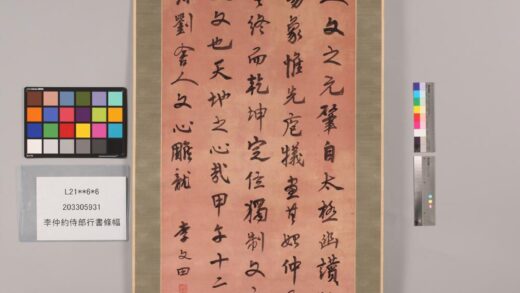 人文之元肇自太極幽讚
易象惟先庖犧畫其始仲
終而乾坤定位獨制文
文也天地之心哉甲午十二
劉舍人文心雕龍
李文田
L21**6*6
203305931
李仲約侍郎行書條幅